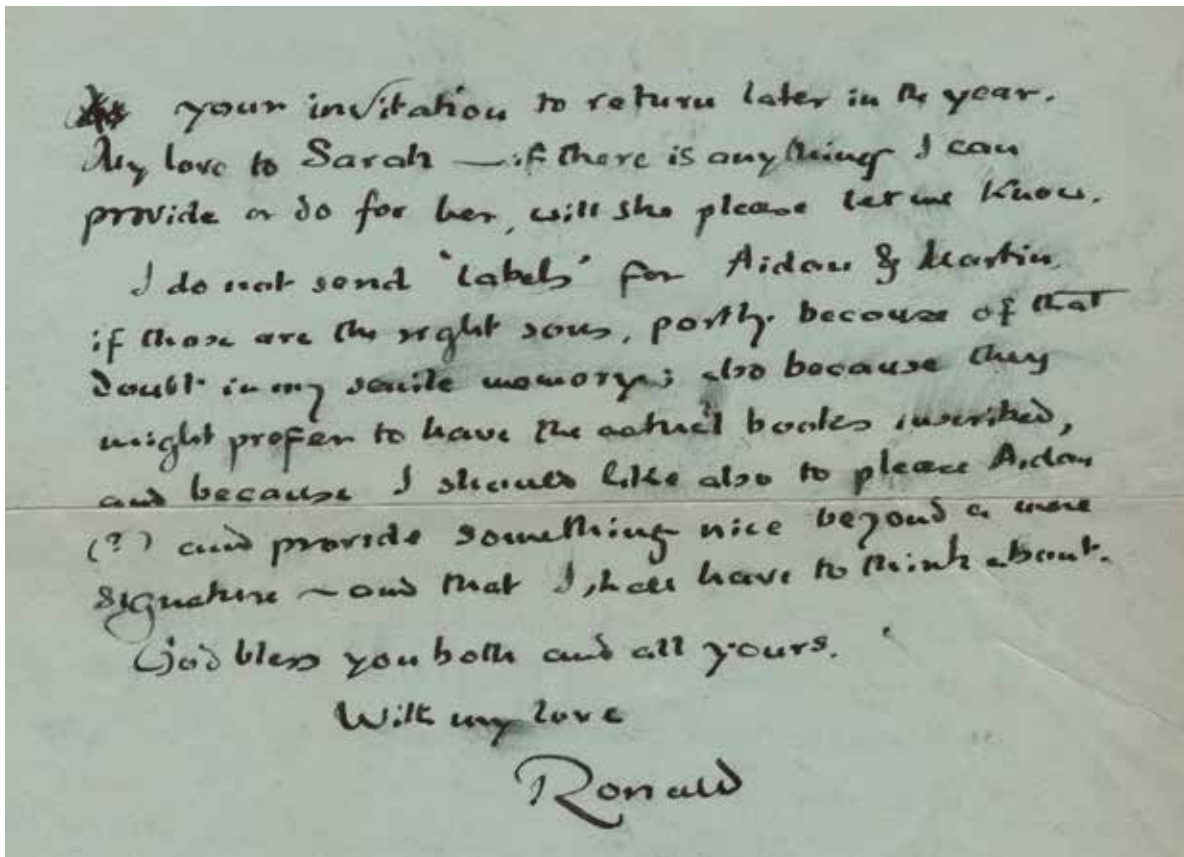 your invitation to return later in the year.
My love to Sarah — if there is anything I can
provide or do for her, will she please let me know.
I do not send 'labels' for Aidan & Martin
if those are the right sons, partly because of that
doubt in my senile memory; also because they
might prefer to have the actual books inscribed,
and because I should like also to please Aidan
(?) and provide something nice beyond a mere
signature – and that I shall have to think about.
God bless you both and all yours.
With my love
Ronald